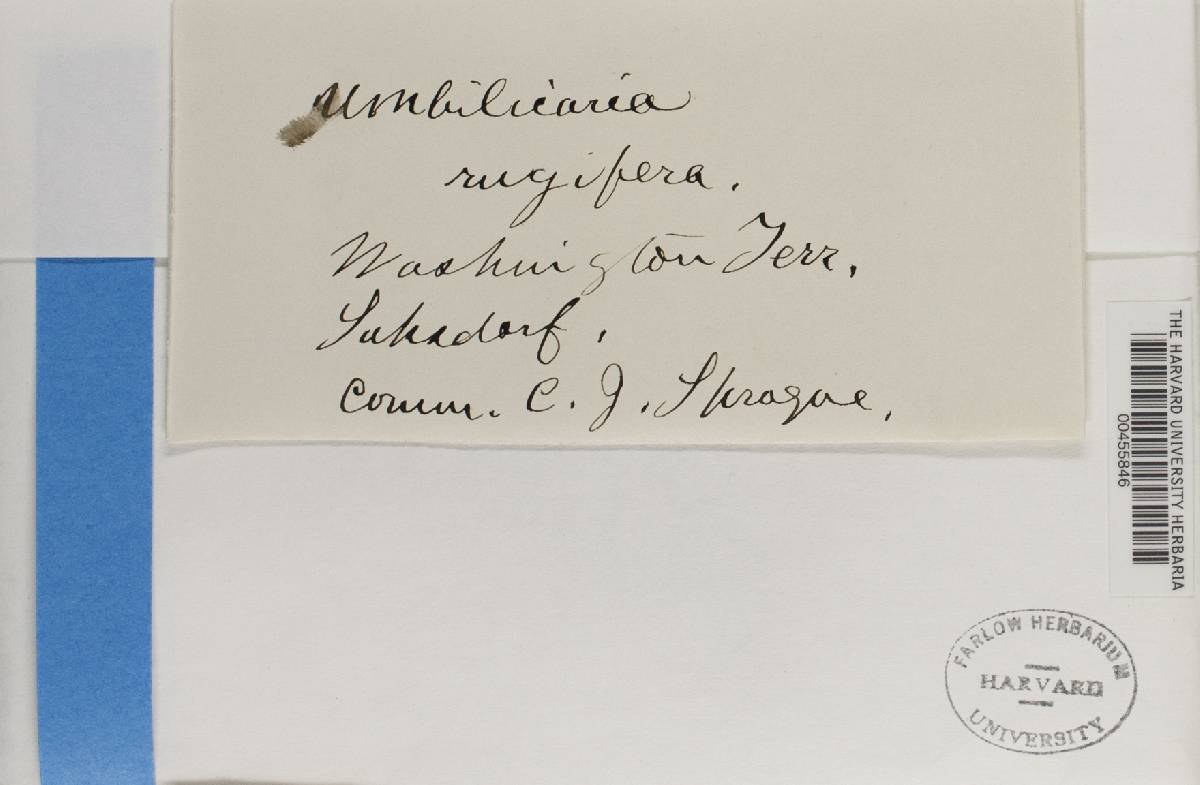 Umbilicaria
rugifera.
Washington Terr.
Suksdorf.
Comm. C. J. Sprague.
THE HARVARD UNIVERSITY HERBARIA
00455846
FARLOW HERBARIUM
HARVARD
UNIVERSITY